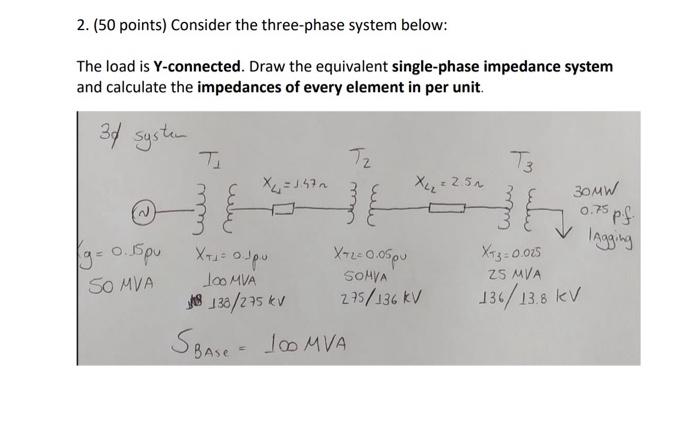 2. (50 points) Consider the three-phase system below:
The load is Y-connected. Draw the equivalent single-phase impedance system
and calculate the impedances of every element in per unit.
3φ system
T1 T2 T3
XL2 = 2.5Ω
30MW
0.75 p.f.
lagging
N
g = 0.15pu XT1 = 0.1pu XT2 = 0.05pu XT3 = 0.025
50 MVA 100 MVA 50MVA 25 MVA
138/275 kV 275/136 kV 136/13.8 kV
SBASE = 100 MVA